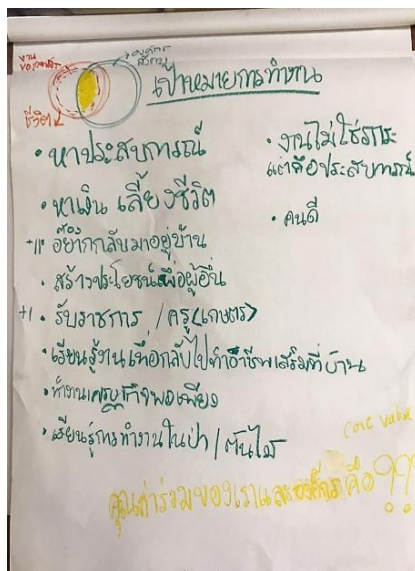 งาน
ชีวิต
เป้าหมายการทำงาน
• หาประสบการณ์
• หาเงิน เลี้ยงชีวิต
อยากกลับมาอยู่บ้าน
• สร้างประโยชน์เพื่อผู้อื่น
+1 • รับราชการ / ครู (เกษตร)
• เรียนรู้งานเพื่อกลับไปทำอาชีพเสริมที่บ้าน
• ทำงานเศรษฐกิจพอเพียง
• เรียนรู้การทำงานในป่า / ต้นไม้
• งานไม่ใช่ภาระ
แต่คือประสบการณ์
• คนดี
core value
คุณค่าร่วมของเราและองค์กร คือ ???